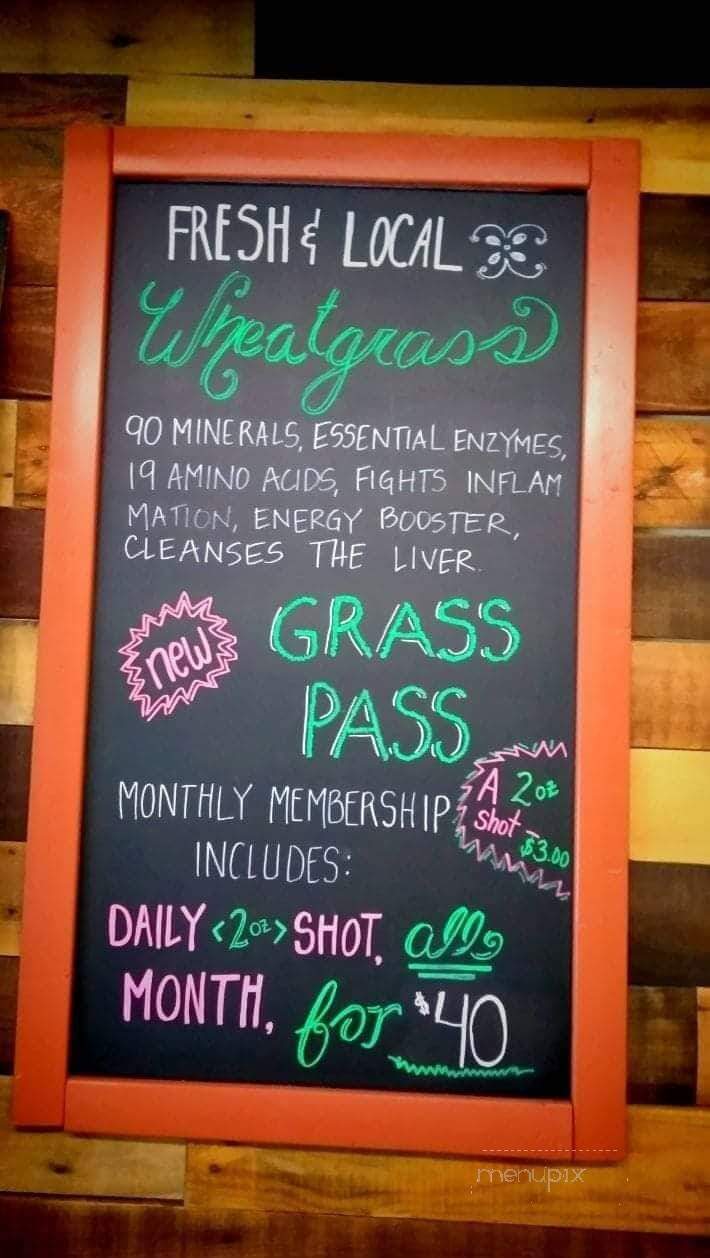 FRESH & LOCAL
Wheatgrass
90 MINERALS, ESSENTIAL ENZYMES,
19 AMINO ACIDS, FIGHTS INFLAM
MATION, ENERGY BOOSTER,
CLEANSES THE LIVER.
new
GRASS
PASS
A 2oz
shot -
$3.00
MONTHLY MEMBERSHIP
INCLUDES:
DAILY <2oz> SHOT, all
MONTH, for $40
menupix